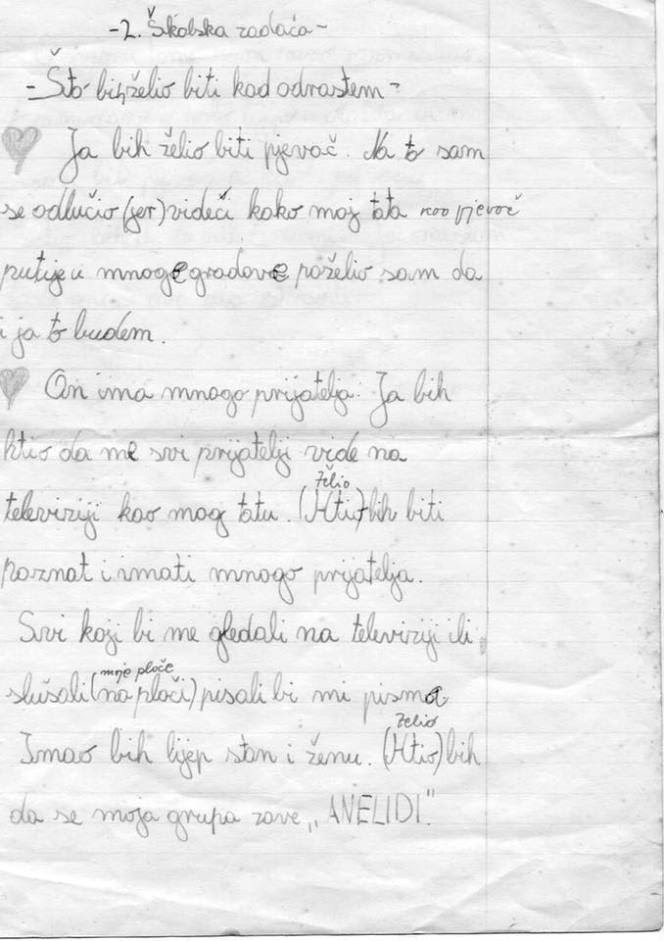 -2. Školska zadaća-
-Što bih želio biti kad odrastem-
Ja bih želio biti pjevač. Na to sam
se odlučio (jer) videći kako moj tata kao pjevač
putuje u mnoge gradove poželio sam da
i ja to budem.
On ima mnogo prijatelja. Ja bih
htio da me svi prijatelji vide na
želio
televiziji kao mog tatu. (Htio) bih biti
poznat i imati mnogo prijatelja.
Svi koji bi me gledali na televiziji ili
moje ploče
slušali (na ploči) pisali bi mi pisma
želio
Imao bih lijep stan i ženu. (Htio) bih
da se moja grupa zove „ANELIDI".